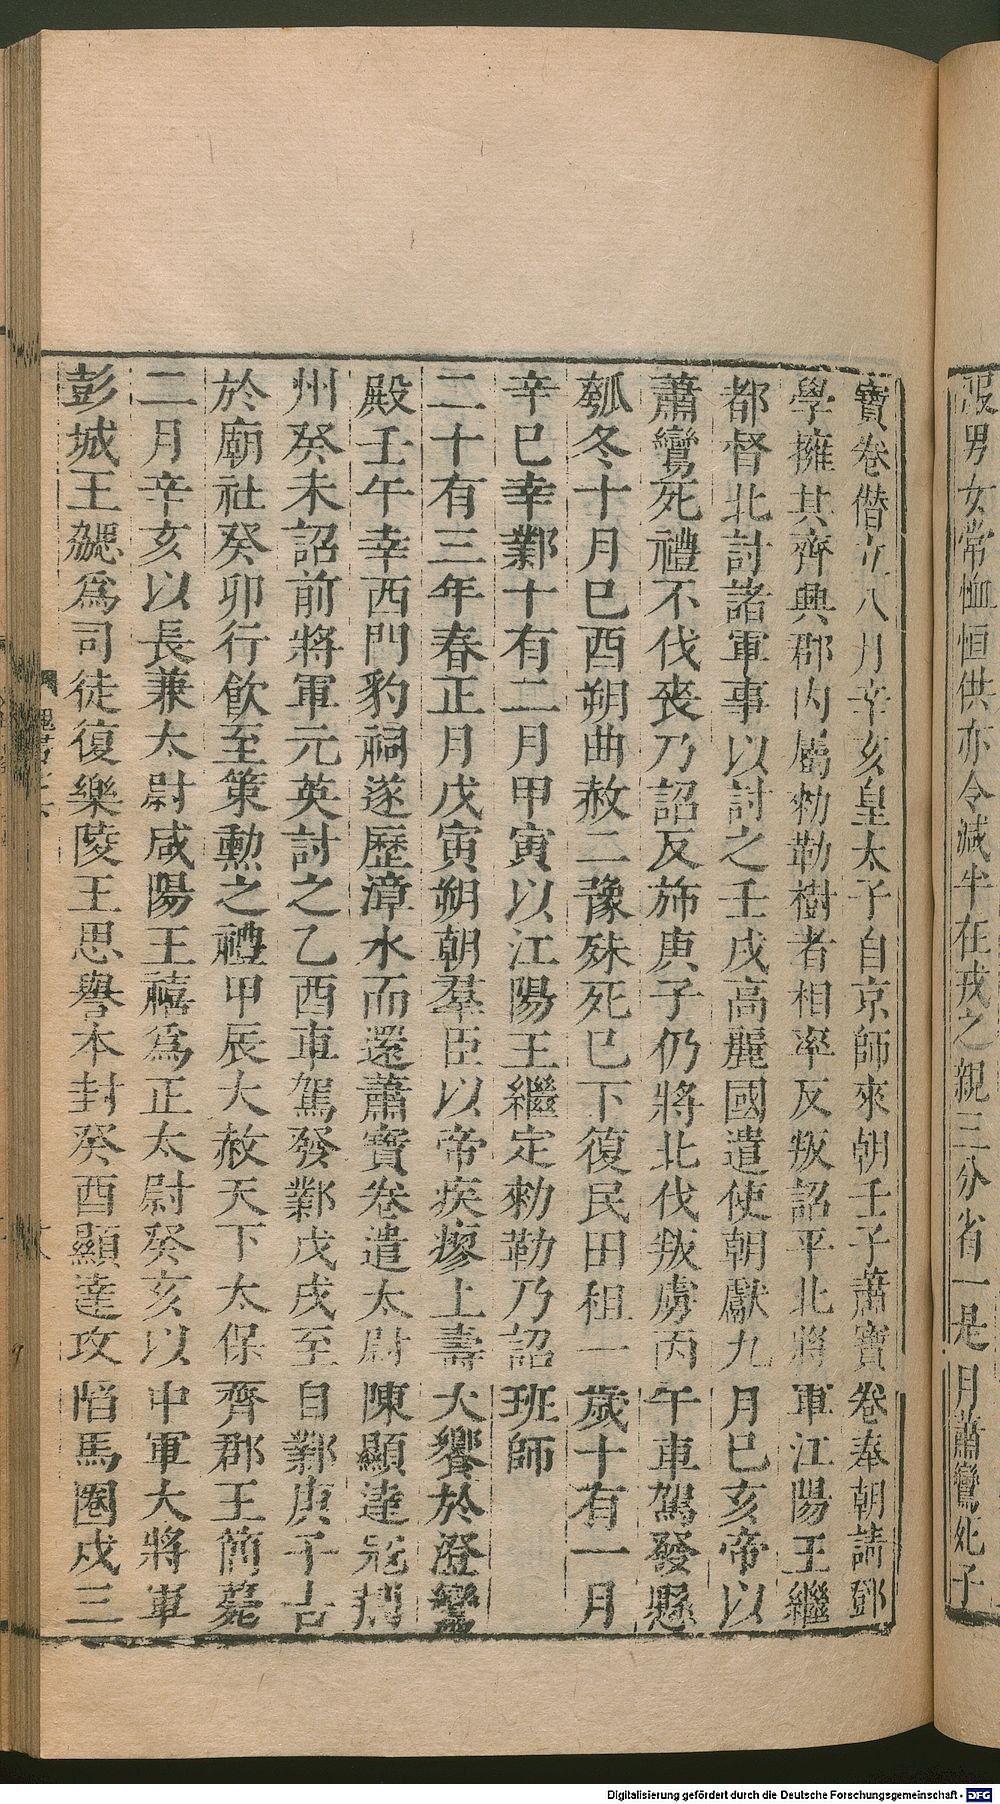 服男女常恤恒供亦令減半在戎之親三分省一是月蕭鸞死子
寶卷僣立八月辛亥皇太子自京師來朝壬子蕭寶卷奉朝請鄧
學擁其齊興郡內屬勑勒樹者相率反叛詔平北將軍江陽王繼
都督北討諸軍事以討之壬戌高麗國遣使朝獻九月巳亥帝以
蕭鸞死禮不伐喪乃詔反斾庚子仍將北伐叛虜丙午車駕發懸
瓠冬十月巳酉朔曲赦二豫殊死巳下復民田租一歲十有一月
辛巳幸鄴十有二月甲寅以江陽王繼定勑勒乃詔班師
二十有三年春正月戊寅朔朝羣臣以帝疾瘳上壽大饗於澄鸞
殿壬午幸西門豹祠遂歷漳水而還蕭寶卷遣太尉陳顯達寇荆
州癸未詔前將軍元英討之乙酉車駕發鄴戊戌至自鄴庚子告
於廟社癸卯行飲至策勲之禮甲辰大赦天下太保齊郡王簡薨
二月辛亥以長兼太尉咸陽王禧爲正太尉癸亥以中軍大將軍
彭城王勰爲司徒復樂陵王思譽本封癸酉顯達攻陷馬圈戍三
魏書
Digitalisierung gefördert durch die Deutsche Forschungsgemeinschaft - DFG